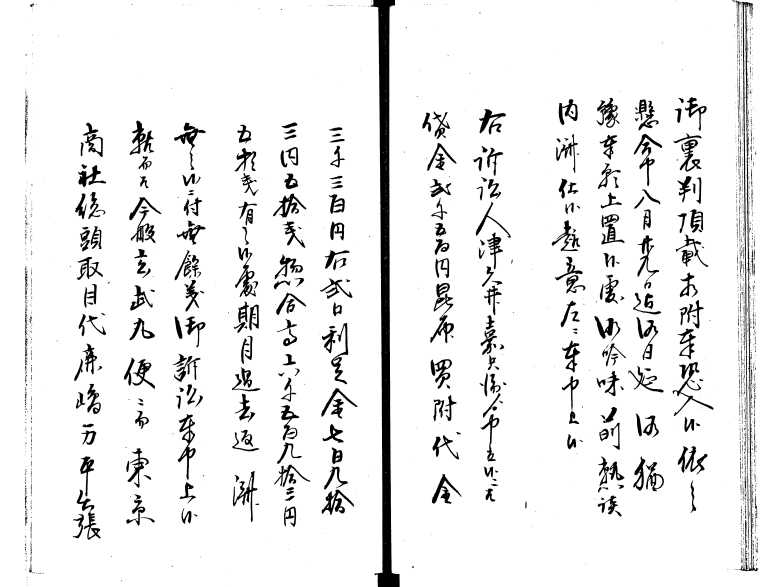 御裏判頂載相附奉恐入候依之
懸合中八月廿九日迄御日延御猶
予奉願上置候処御吟味前熟談
内済仕候趣意左ニ奉申上候
右訴訟人津久井嘉兵衛申立候ハ
貸金弐千五百円昆布買附代金
三千三百円右弐口利足金七百九拾
三円五拾銭惣合高六千五百九拾三円
五拾銭有之候処期月過去返済
無之候ニ付無余義御訴訟奉申上候
然ルニ今般玄武丸便ニ而東京
商社総頭取目代 万平出張